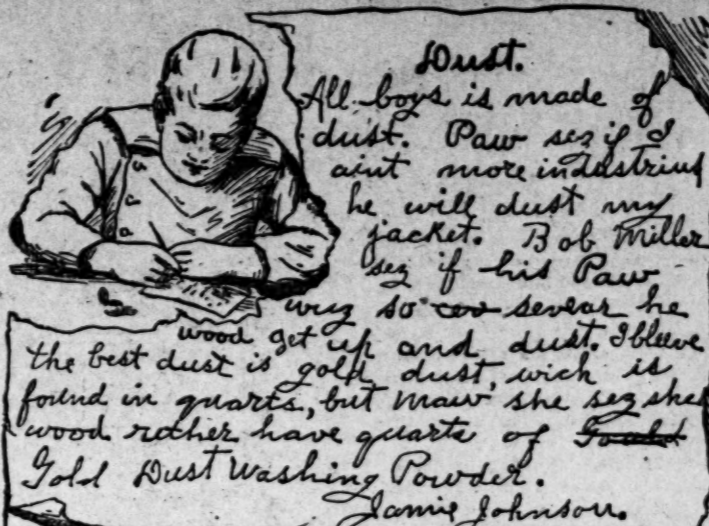 Dust.
All boys is made of
dust. Paw sez if I
aint more industrius
he will dust my
jacket. Bob Miller
sez if his Paw
wuz so coo sevear he
wood get up and dust. I bleeve
the best dust is gold dust, wich is
found in quarts, but Maw she sez she
wood rather have quarts of Goald
Gold Dust Washing Powder.
Jamie Johnson.